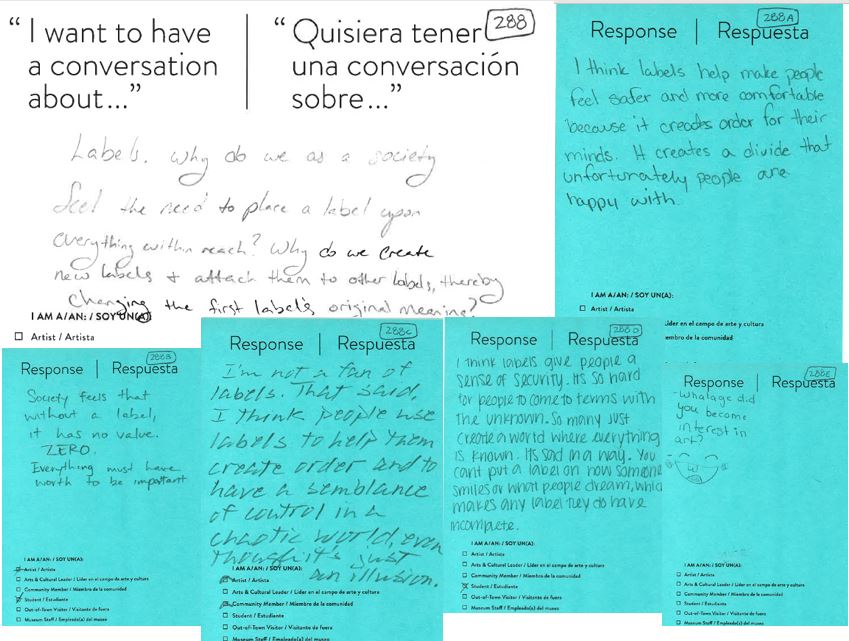 “ I want to have
a conversation
about...”
“ Quisiera tener
una conversación
sobre...”
288
Labels. Why do we as a society
feel the need to place a label upon
everything within reach? Why do we create
new labels + attach them to other labels, thereby
changing the first label's original meaning?
I AM A/AN: / SOY UN(A):
Artist / Artista
288A
Response | Respuesta
I think labels help make people
feel safer and more comfortable
because it creates order for their
minds. It creates a divide that
unfortunately people are
happy with.
I AM A/AN: / SOY UN(A):
Artist / Artista
Líder en el campo de arte y cultura
embro de la comunidad
288B
Response | Respuesta
Society feels that
without a label,
it has no value.
ZERO.
Everything must have
worth to be important
I AM A/AN: / SOY UN(A):
Artist / Artista
Arts & Cultural Leader / Líder en el campo de arte y cultura
Community Member / Miembro de la comunidad
Student / Estudiante
Out-of-Town Visitor / Visitante de fuera
Museum Staff / Empleado(a) del museo
288C
Response | Respuesta
I'm not a fan of
labels. That said,
I think people use
labels to help them
create order and to
have a semblance
of control in a
chaotic world, even
though it's just
an illusion.
I AM A/AN: / SOY UN(A):
Artist / Artista
Arts & Cultural Leader / Líder en el campo de arte y cultura
Community Member / Miembro de la comunidad
Student / Estudiante
Out-of-Town Visitor / Visitante de fuera
Museum Staff / Empleado(a) del museo
288D
Response | Respuesta
I think labels give people a
sense of security. It's so hard
for people to come to terms with
the unknown. So many just
create a world where everything
is known. It's sad in a way. You
can't put a label on how someone
smiles or what people dream, which
makes any label they do have
incomplete.
I AM A/AN: / SOY UN(A):
Artist / Artista
Arts & Cultural Leader / Líder en el campo de arte y cultura
Community Member / Miembro de la comunidad
Student / Estudiante
Out-of-Town Visitor / Visitante de fuera
Museum Staff / Empleado(a) del museo
288E
Response | Respuesta
-What age did
you become
interest in
art?
I AM A/AN: / SOY UN(A):
Artist / Artista
Arts & Cultural Leader / Líder en el campo de arte y cultura
Community Member / Miembro de la comunidad
Student / Estudiante
Out-of-Town Visitor / Visitante de fuera
Museum Staff / Empleado(a) del museo